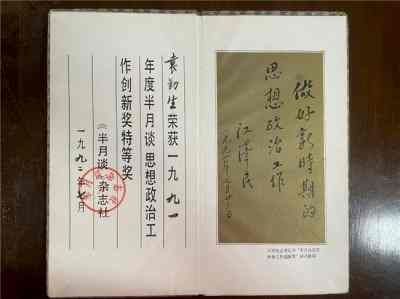 袁勤生荣获一九九一
年度半月谈思想政治工
作创新奖特等奖
《半月谈》杂志社
一九九二年七月
做好新時期的
思想政治工作
江泽民